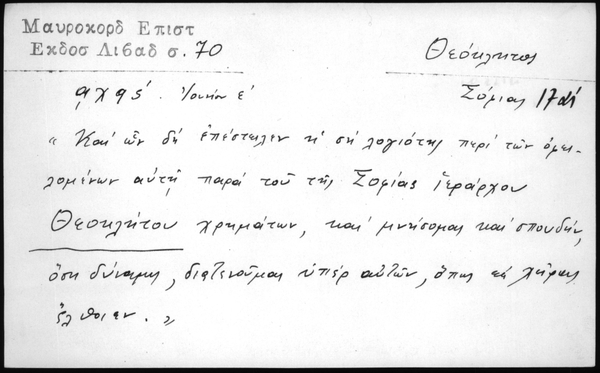 Μαυροκορδ Επιστ
Εκδοσ Λιβαδ σ. 70
Θεόκλητος
͵αχϟϛ΄. Ἰουνίου ε΄
Σόφιας
« Καί ὧν δή ἐπέστειλεν ἡ σή λογιότης περί τῶν ὀφει-
λομένων αὐτῇ παρά τοῦ τῆς Σοφίας Ἱεράρχου
Θεοκλήτου χρημάτων, καί μνήσομαι καί σπουδήν,
ὅση δύναμις, διατενοῦμαι ὑπέρ αὐτῶν, ὅπως εἰς χεῖρας
ἔλθοιεν. »